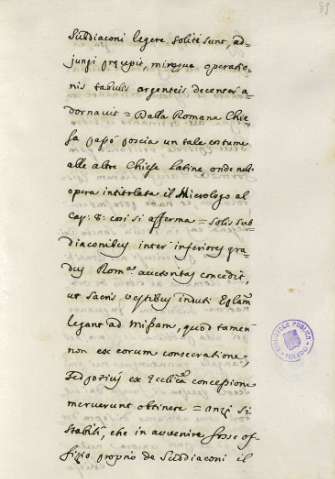 Subdiaconi legere soliti sunt, ad=
jungi præcepit, miroque operatio=
nis tabulis argenteis decenter a=
dornavit = Dalla Romana Chie=
sa passò poscia un tale costume
alle altre Chiese latine onde nell'
opera intitolata il Micrologo al
Cap: 8: così si afferma = Solis Sub=
diaconibus inter inferiores gra=
dus Rom.ª auctoritas concedit,
ut Sacris vestibus induti Eplam
legant ad Missam, quod tamen
non ex eorum consecratione,
Sed potius ex Ecclicª concessione
meruerunt obtinere = anzi si
stabilì, che in avvenire fosse of=
fizio proprio de Suddiaconi il
BIBLIOTECA PUBLICA
TOLEDO